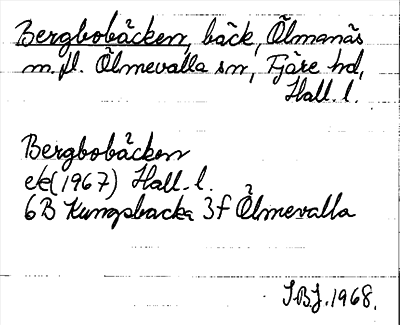 Bergbobäcken, bäck, Ölmanäs
m.fl. Ölmevalla sn, Fjäre hd,
Hall. l.
Bergbobäcken
ek (1967) Hall. l.
6B Kungsbacka 3f Ölmevalla
1968.